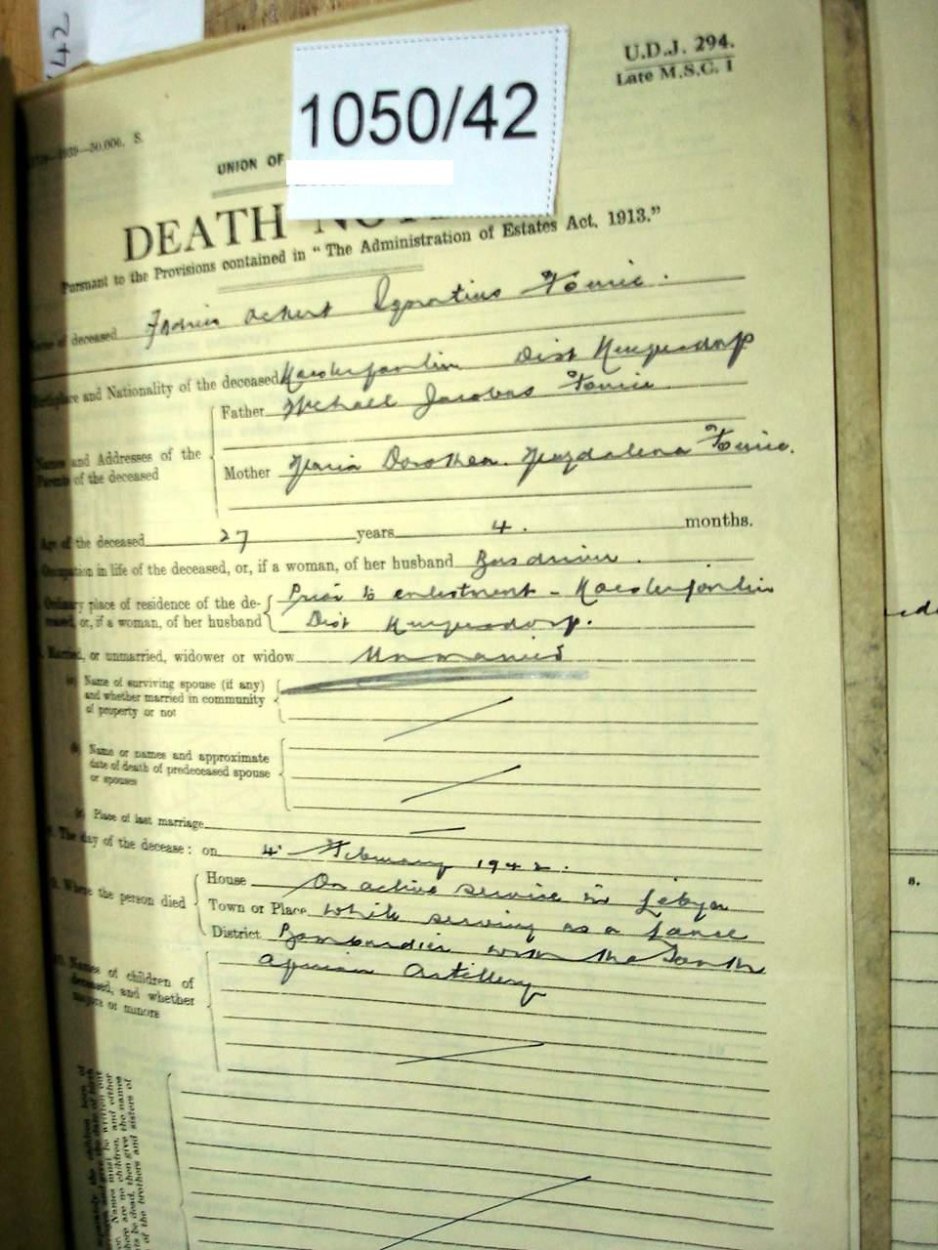 42
1050/42
U.D.J. 294.
Late M.S.C. 1
1939—50,000. S.
UNION OF
DEATH
Pursuant to the Provisions contained in "The Administration of Estates Act, 1913."
of deceased Ackert Ignatius Fourie.
and Nationality of the deceased Kaesterfontein Dist Krugersdorp
Father Michall Jacobus Fourie
Names and Addresses of the
Parents of the deceased
Mother Maria Dorothea Magdalena Fourie.
Age of the deceased 27 years 4. months.
Occupation in life of the deceased, or, if a woman, of her husband Bus driver.
Ordinary place of residence of the de-
ceased, or, if a woman, of her husband
Prior to enlistment - Kaesterfontein
Dist Krugersdorp.
Married, or unmarried, widower or widow Unmarried
Name of surviving spouse (if any)
and whether married in community
of property or not
Name or names and approximate
date of death of predeceased spouse
or spouses
Place of last marriage
The day of the decease: on 4 February 1942.
Where the person died
House On active service in Libya
Town or Place while serving as a Lance
District Bombardier with the South
African Artillery
Names of children of
deceased, and whether
majors or minors
8.